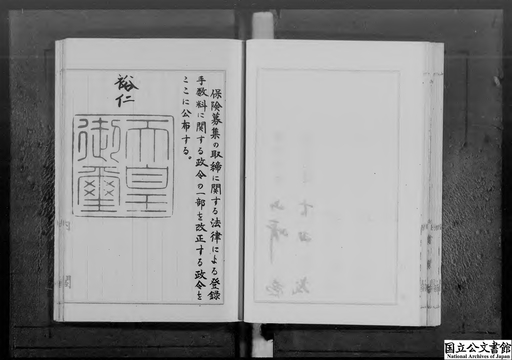 保険募集の取締に関する法律による登録
手数料に関する政令の一部を改正する政令を
ここに公布する。
裕仁
天皇
御璽
国立公文書館
National Archives of Japan